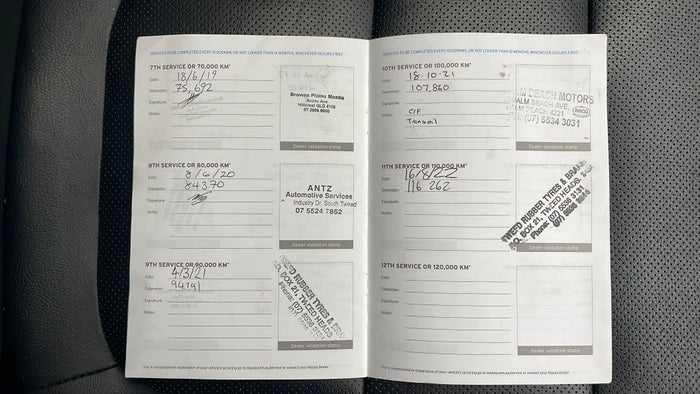 SERVICES TO BE COMPLETED EVERY 10,000KMS, OR NOT LONGER THAN 12 MONTHS, WHICHEVER OCCURS FIRST
7TH SERVICE OR 70,000 KM*
Date: 18/6/19
Odometer: 75,692
Signature:
Notes:
Browns Plains Mazda
Anzac Ave
Hillcrest QLD 4118
Dealer validation stamp
8TH SERVICE OR 80,000 KM*
Date: 8/6/20
Odometer: 84370
Signature:
Notes:
ANTZ
Automotive Services
Industry Dr, South Tweed
07 5524 7852
Dealer validation stamp
9TH SERVICE OR 90,000 KM*
Date: 4/3/21
Odometer: 94791
Signature:
Notes:
TWEED RUBBER TYRES &
P.O. BOX 21, TWEED HEADS.
Phone: (07) 5536 3131
Dealer validation stamp
*For a comprehensive explanation of your vehicle's servicing go to mazda.com.au/service or contact your Mazda Dealer
SERVICES TO BE COMPLETED EVERY 10,000KMS, OR NOT LONGER THAN 12 MONTHS, WHICHEVER OCCURS FIRST
10TH SERVICE OR 100,000 KM*
Date: 18-10-21
Odometer: 107,860
Signature:
Notes:
PALM BEACH MOTORS
PALM BEACH AVE.
PALM BEACH 4221
(07) 5534 3031
RACQ
Dealer validation stamp
11TH SERVICE OR 110,000 KM*
Date: 16/8/22
Odometer: 116 262
Signature:
Notes:
TWEED RUBBER TYRES & BRAKE
P.O. BOX 21, TWEED HEADS.
Phone: (07) 5536 3131
Dealer validation stamp
12TH SERVICE OR 120,000 KM*
Date:
Odometer:
Signature:
Notes:
Dealer validation stamp
*For a comprehensive explanation of your vehicle's servicing go to mazda.com.au/service or contact your Mazda Dealer